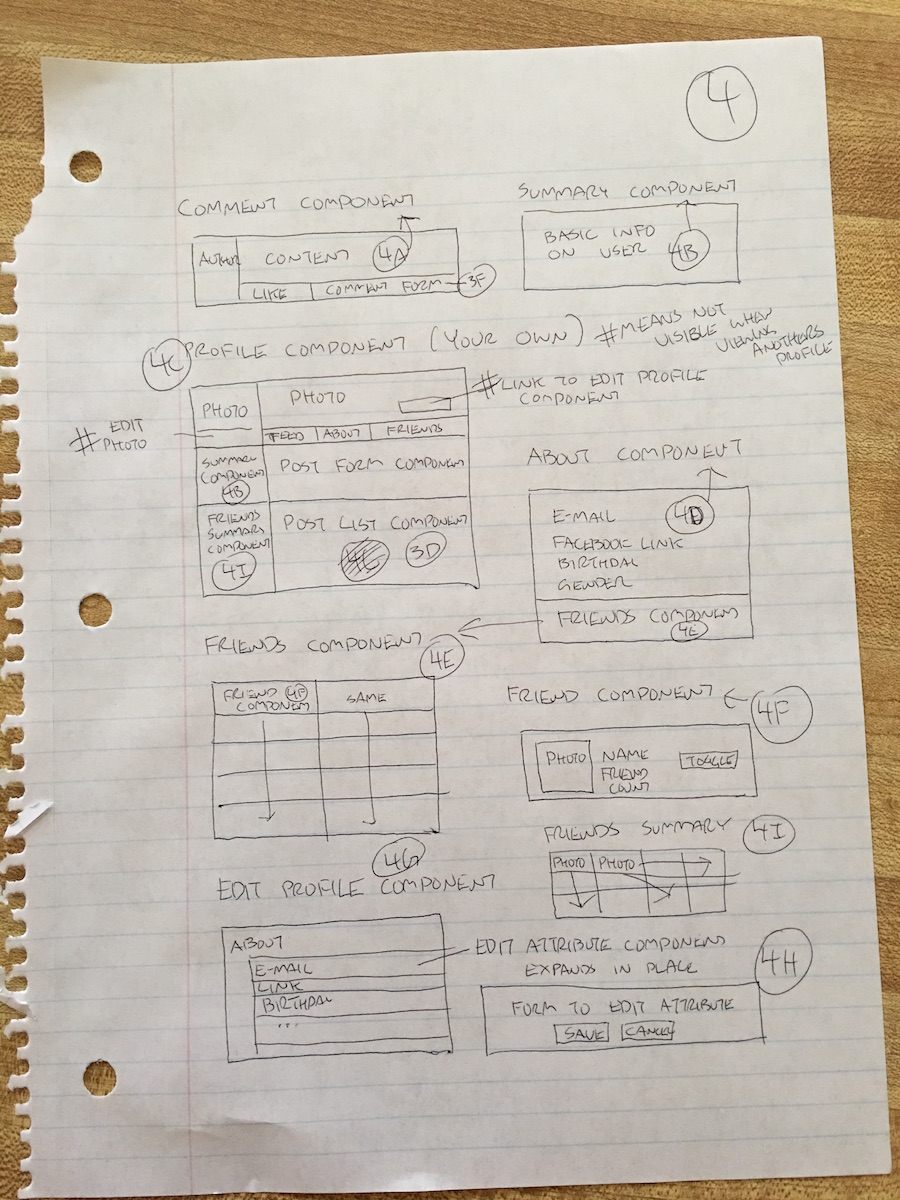 4
COMMENT COMPONENT
AUTHOR
CONTENT 4A
LIKE
COMMENT FORM 3F
SUMMARY COMPONENT
BASIC INFO
ON USER 4B
4C PROFILE COMPONENT (YOUR OWN)
#MEANS NOT
VISIBLE WHEN
VIEWING
ANOTHERS
PROFILE
# EDIT
PHOTO
PHOTO
PHOTO
#LINK TO EDIT PROFILE
COMPONENT
FEED | ABOUT | FRIENDS
SUMMARY
COMPONENT
4B
POST FORM COMPONENT
FRIENDS
SUMMARY
COMPONENT
4I
POST LIST COMPONENT
3D
ABOUT COMPONENT
E-MAIL 4D
FACEBOOK LINK
BIRTHDAY
GENDER
FRIENDS COMPONENT
4E
FRIENDS COMPONENT
4E
FRIEND 4F
COMPONENT
SAME
FRIEND COMPONENT 4F
PHOTO
NAME
FRIEND
COUNT
TOGGLE
FRIENDS SUMMARY 4I
PHOTO PHOTO
4G
EDIT PROFILE COMPONENT
ABOUT
E-MAIL
LINK
BIRTHDAY
...
EDIT ATTRIBUTE COMPONENT
EXPANDS IN PLACE
4H
FORM TO EDIT ATTRIBUTE
SAVE CANCEL